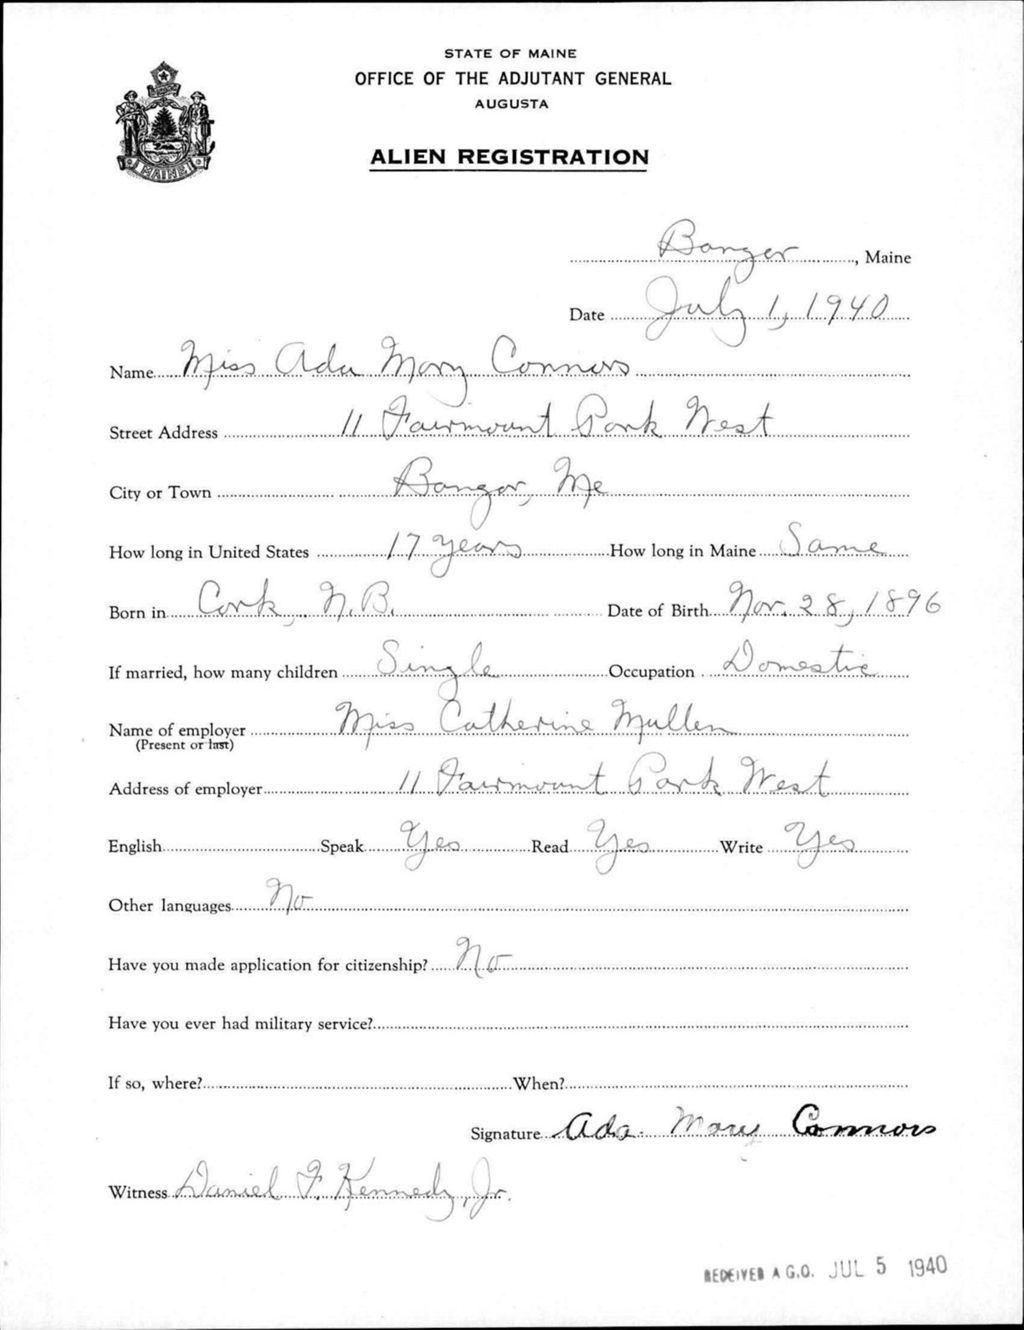 STATE OF MAINE
OFFICE OF THE ADJUTANT GENERAL
AUGUSTA
ALIEN REGISTRATION
MAINE
Bangor, Maine
Date July 1, 1940
Name Miss Ada Mary Connors
Street Address 11 Fairmount Park West
City or Town Bangor, Me
How long in United States 17 years How long in Maine Same
Born in Cork, N.B. Date of Birth Nov. 28, 1896
If married, how many children Single Occupation Domestic
Name of employer Miss Catherine Mullen
(Present or last)
Address of employer 11 Fairmount Park West
English Speak Yes Read Yes Write Yes
Other languages No
Have you made application for citizenship? No
Have you ever had military service?
If so, where? When?
Signature Ada Mary Connors
Witness Daniel F. Kennedy, Jr.
RECEIVED A.G.O. JUL 5 1940